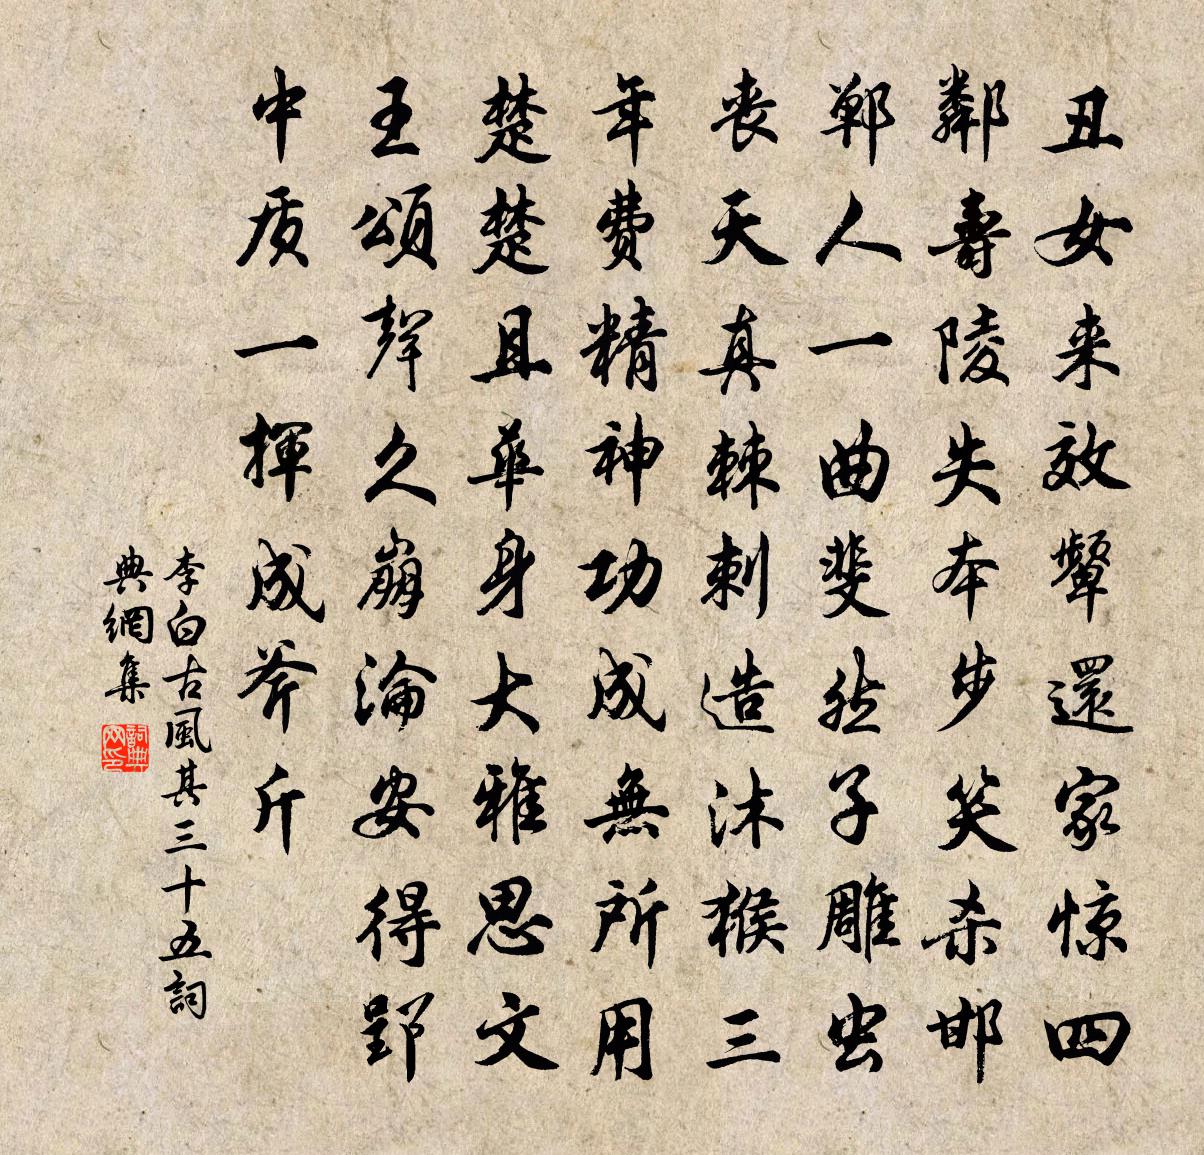 丑女来效颦還家惊四
鄰壽陵失本步笑杀邯
郸人一曲斐然子雕虫
丧天真棘刺造沐猴三
年费精神功成無所用
楚楚且華身大雅思文
王頌聲久崩淪安得郢
中质一揮成斧斤
李白古風其三十五詞
典網集
詞典網印